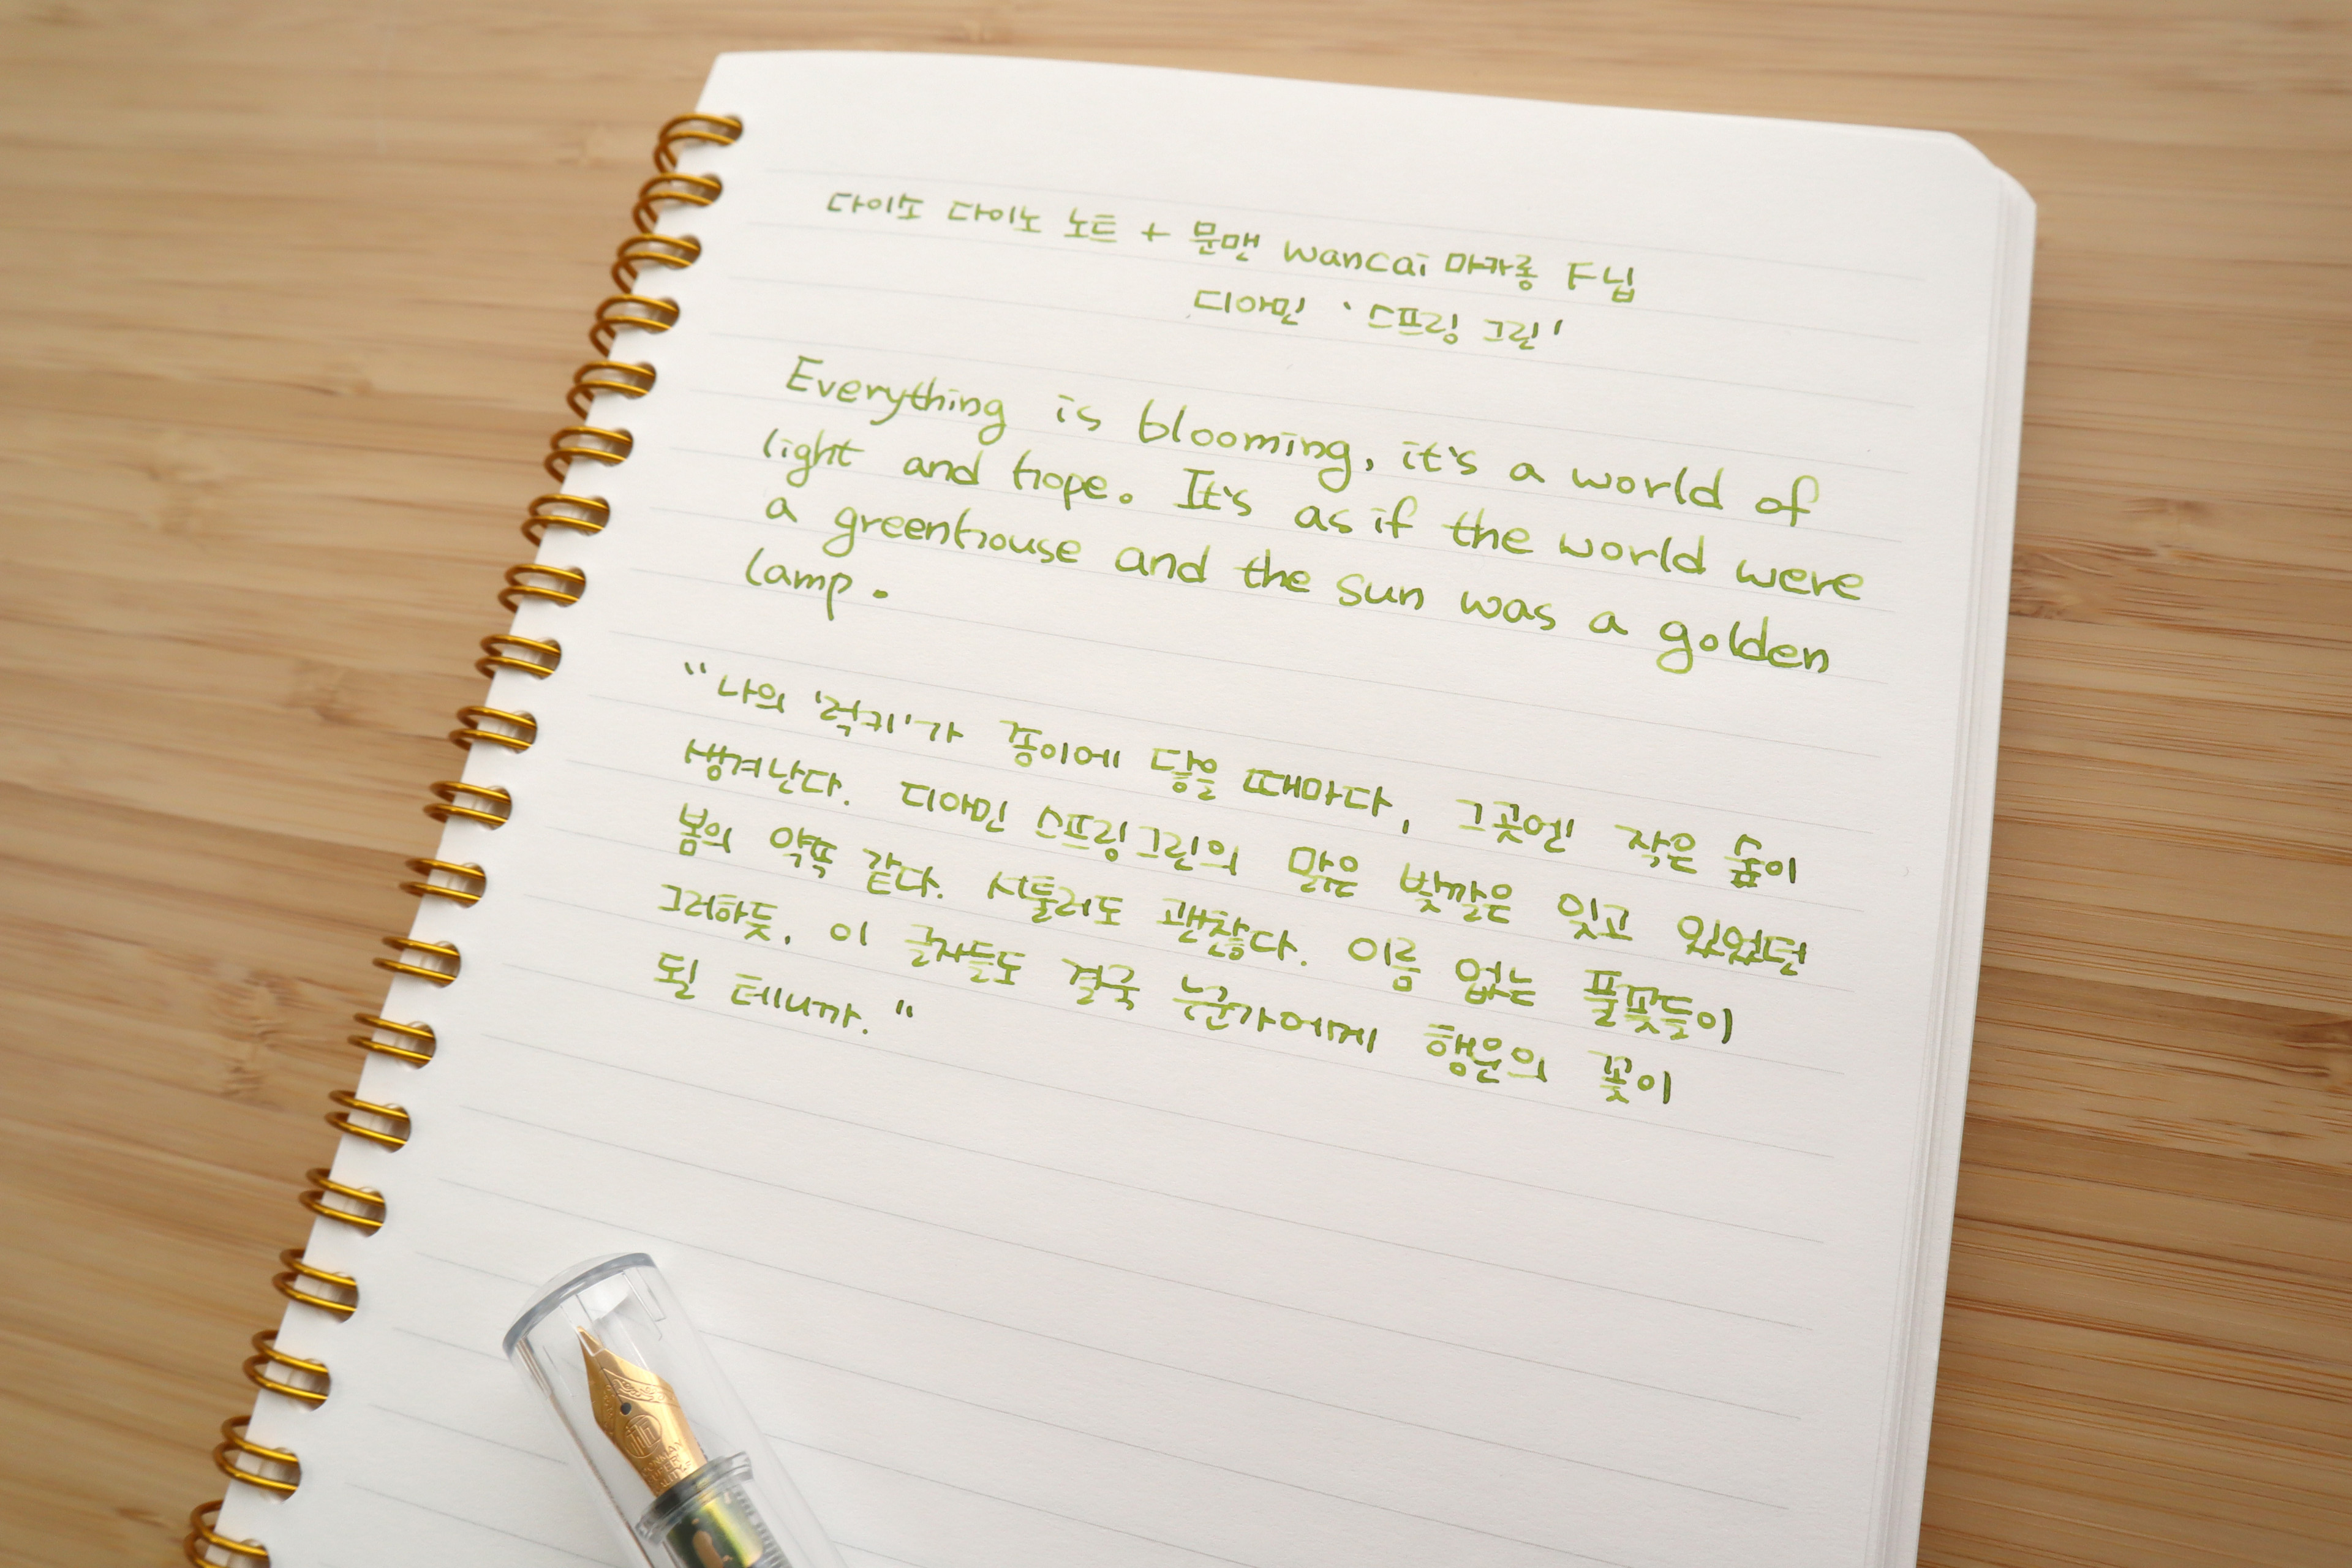 다이소 다이노 노트 + 문맨 wancai 마카롱 F닙
디아민 '스프링 그린'
Everything is blooming, it's a world of
light and hope. It's as if the world were
a greenhouse and the sun was a golden
lamp.
"나의 '럭키'가 종이에 닿을 때마다, 그곳엔 작은 숲이
생겨난다. 디아민 스프링그린의 맑은 빛깔은 잊고 있었던
봄의 약똑 같다. 서툴러도 괜찮다. 이름 없는 풀꽃들이
그러하듯, 이 글자들도 결국 누군가에게 행운의 꽃이
될 테니까."